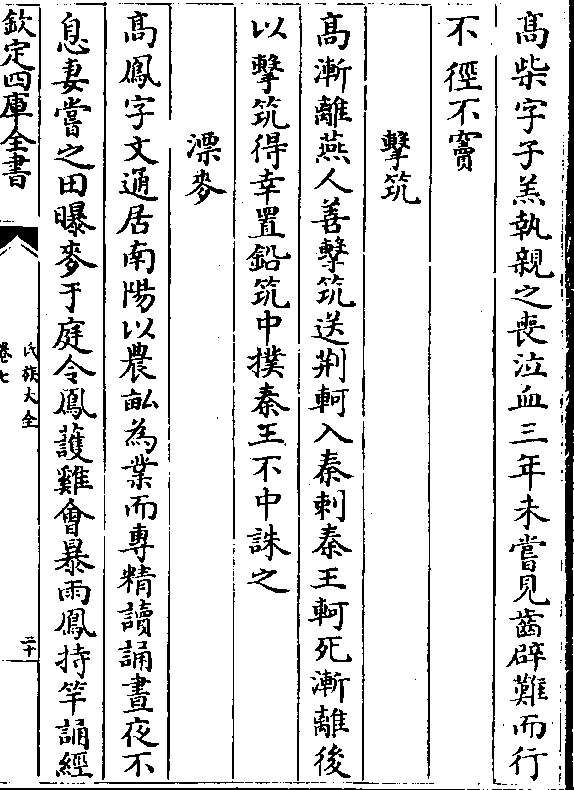 髙柴字子羔執親之喪泣血三年未嘗見齒辟難而行
不徑不竇
擊筑
髙漸離燕人善擊筑送荆軻入秦刺秦王軻死漸離後
以擊筑得幸置鉛筑中撲秦王不中誅之
漂麥
髙鳳字文通居南陽以農畆為業而專精讀誦晝夜不
息妻嘗之田曝麥于庭令鳳護雞會暴雨鳳持竿誦經
欽定四庫全書
氏族大全
卷七
二十